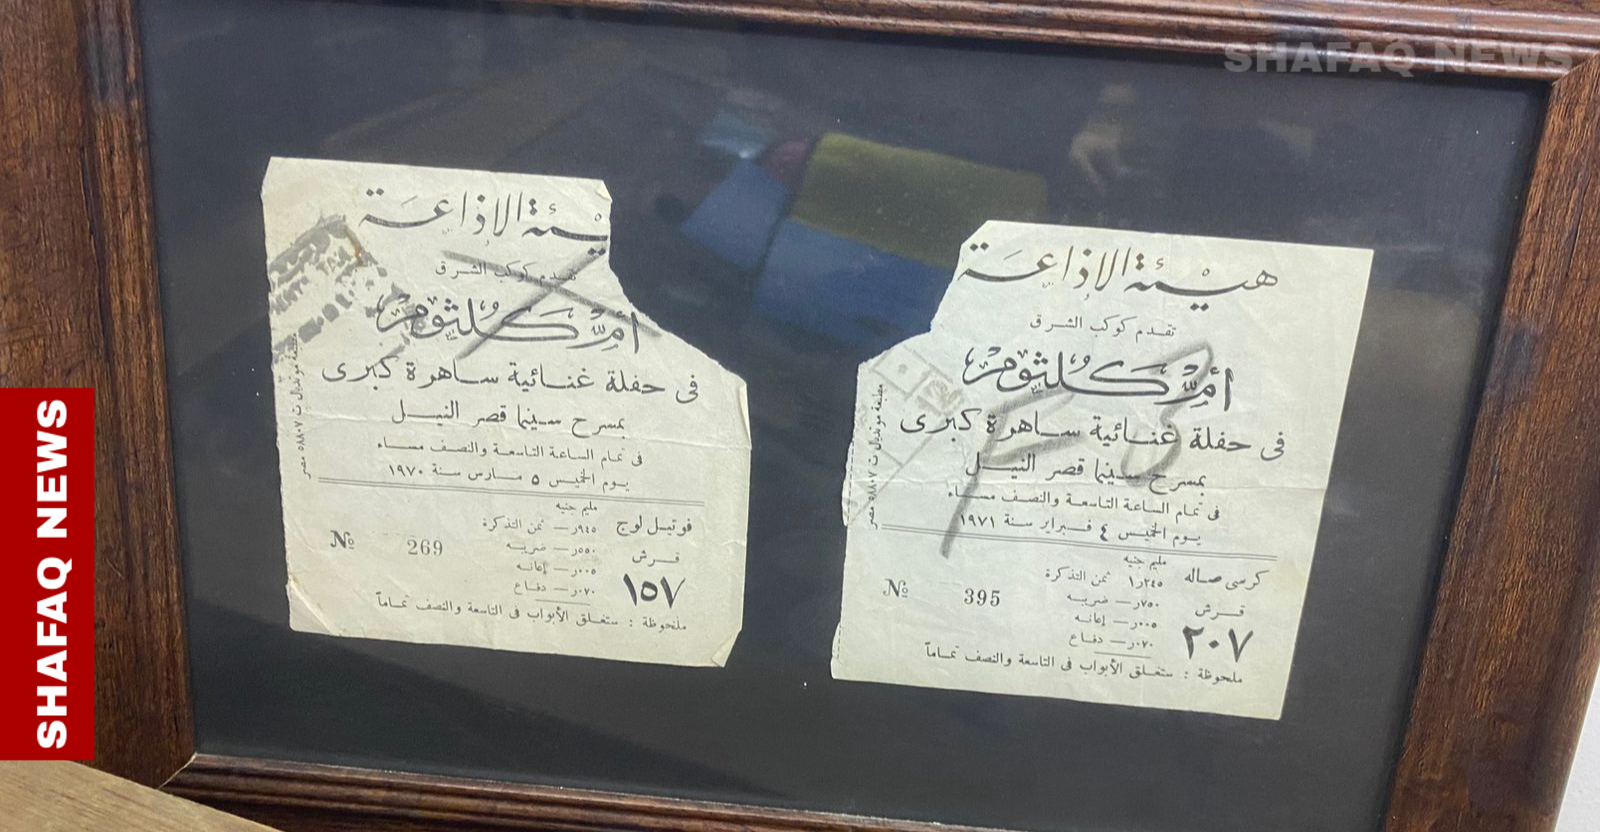 SHAFAQ NEWS
SHAFAQ NEWS
هيئة الإذاعة
تقدم كوكب الشرق
أم كلثوم
فى حفلة غنائية ساهرة كبرى
بمسرح سينما قصر النيل
فى تمام الساعة التاسعة والنصف مساء
يوم الخميس ٥ مارس سنة ١٩٧٠
مليم جنيه
فوتيل لوج
٩٤٥ر— ثمن التذكرة
قرش
٥٥٠ر— ضريبه
№ 269
٠٠٥ر— إعانه
١٥٧
٠٧٠ر— دفاع
ملحوظة : ستغلق الأبواب فى التاسعة والنصف تماماً
مطبعة مونديال ت ٥٨٨٠٧ مصر
هيئة الإذاعة
تقدم كوكب الشرق
أم كلثوم
فى حفلة غنائية ساهرة كبرى
بمسرح سينما قصر النيل
فى تمام الساعة التاسعة والنصف مساء
يوم الخميس ٤ فبراير سنة ١٩٧١
مليم جنيه
كرسى صاله
٢٤٥ر١ ثمن التذكرة
قرش
٧٥٠ر— ضريبه
№ 395
٠٠٥ر— إعانه
٢٠٧
٠٧٠ر— دفاع
ملحوظة : ستغلق الأبواب فى التاسعة والنصف تماماً
مطبعة مونديال ت ٥٨٨٠٧ مصر